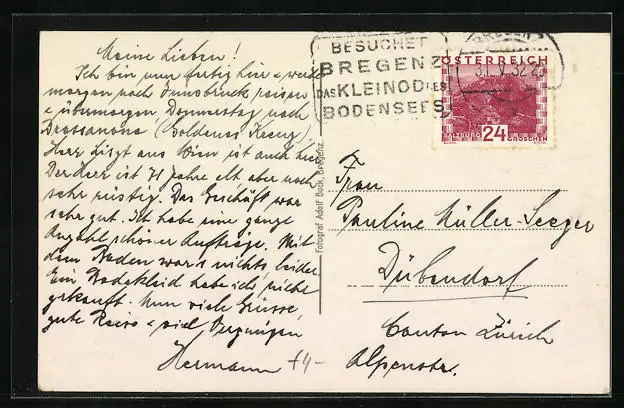 Meine Lieben!
Ich bin nun fertig hier & werde
morgen nach Innsbruck reisen
& übermorgen, Donnerstag nach
Bressanone (Goldenes Kreuz).
Herr Liszt aus Wien ist auch hier
Der Herr ist 71 Jahre alt aber noch
sehr rüstig. Das Geschäft war
sehr gut. Ich habe eine ganze
Anzahl schöner Aufträge. Mit
dem Baden war's nichts, leider.
Ein Badekleid habe ich nicht
gekauft. Nun viele Grüsse,
gute Reise & viel Vergnügen
Hermann
+4-
Fotograf Adolf Back, Bregenz.
BESUCHET
BREGENZ
DAS KLEINOD DES
BODENSEES
BREGENZ
31. V. 32
ÖSTERREICH
SALZBURG 24 GROSCHEN
Frau
Pauline Müller-Seeger
Dübendorf
Canton Zürich
Alpenstr.